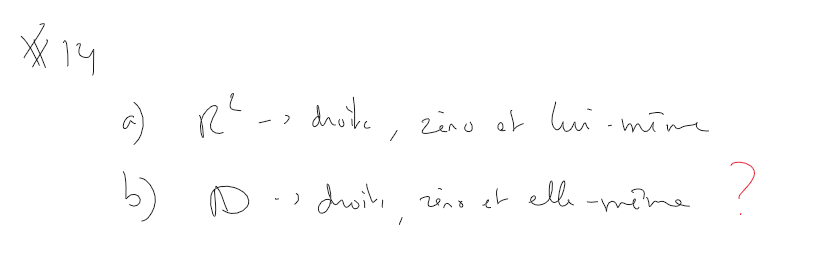 14
a) R² -> droite, zéro et lui-même
b) D -> droite, zéro et elle-même ?